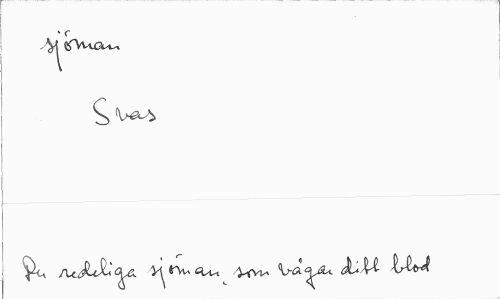 sjöman
Svas
Du redeliga sjöman, som vågar ditt blod